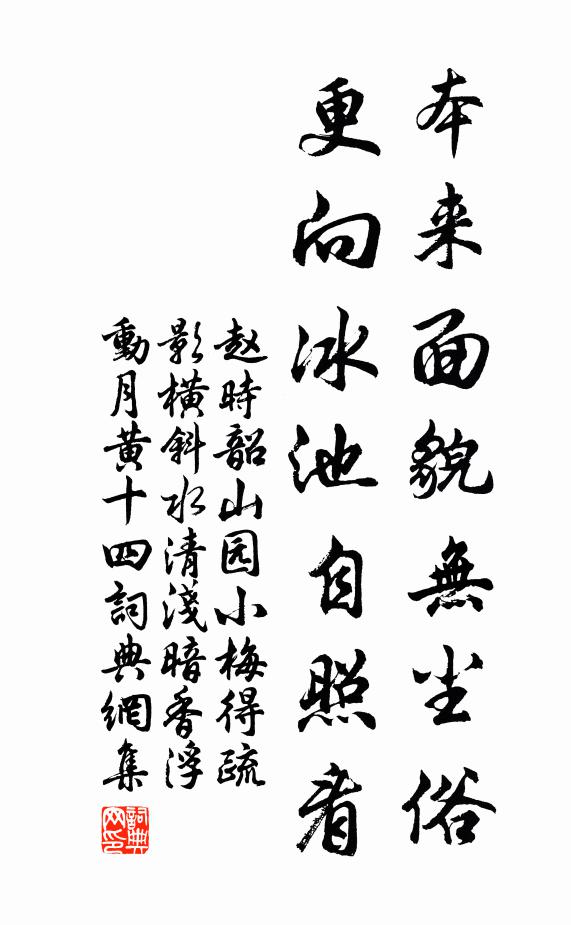 本来面貌無尘俗
更向冰池自照看
赵時韶山园小梅得疏
影橫斜水清淺暗香浮
動月黄十四詞典網集
詞典
网印